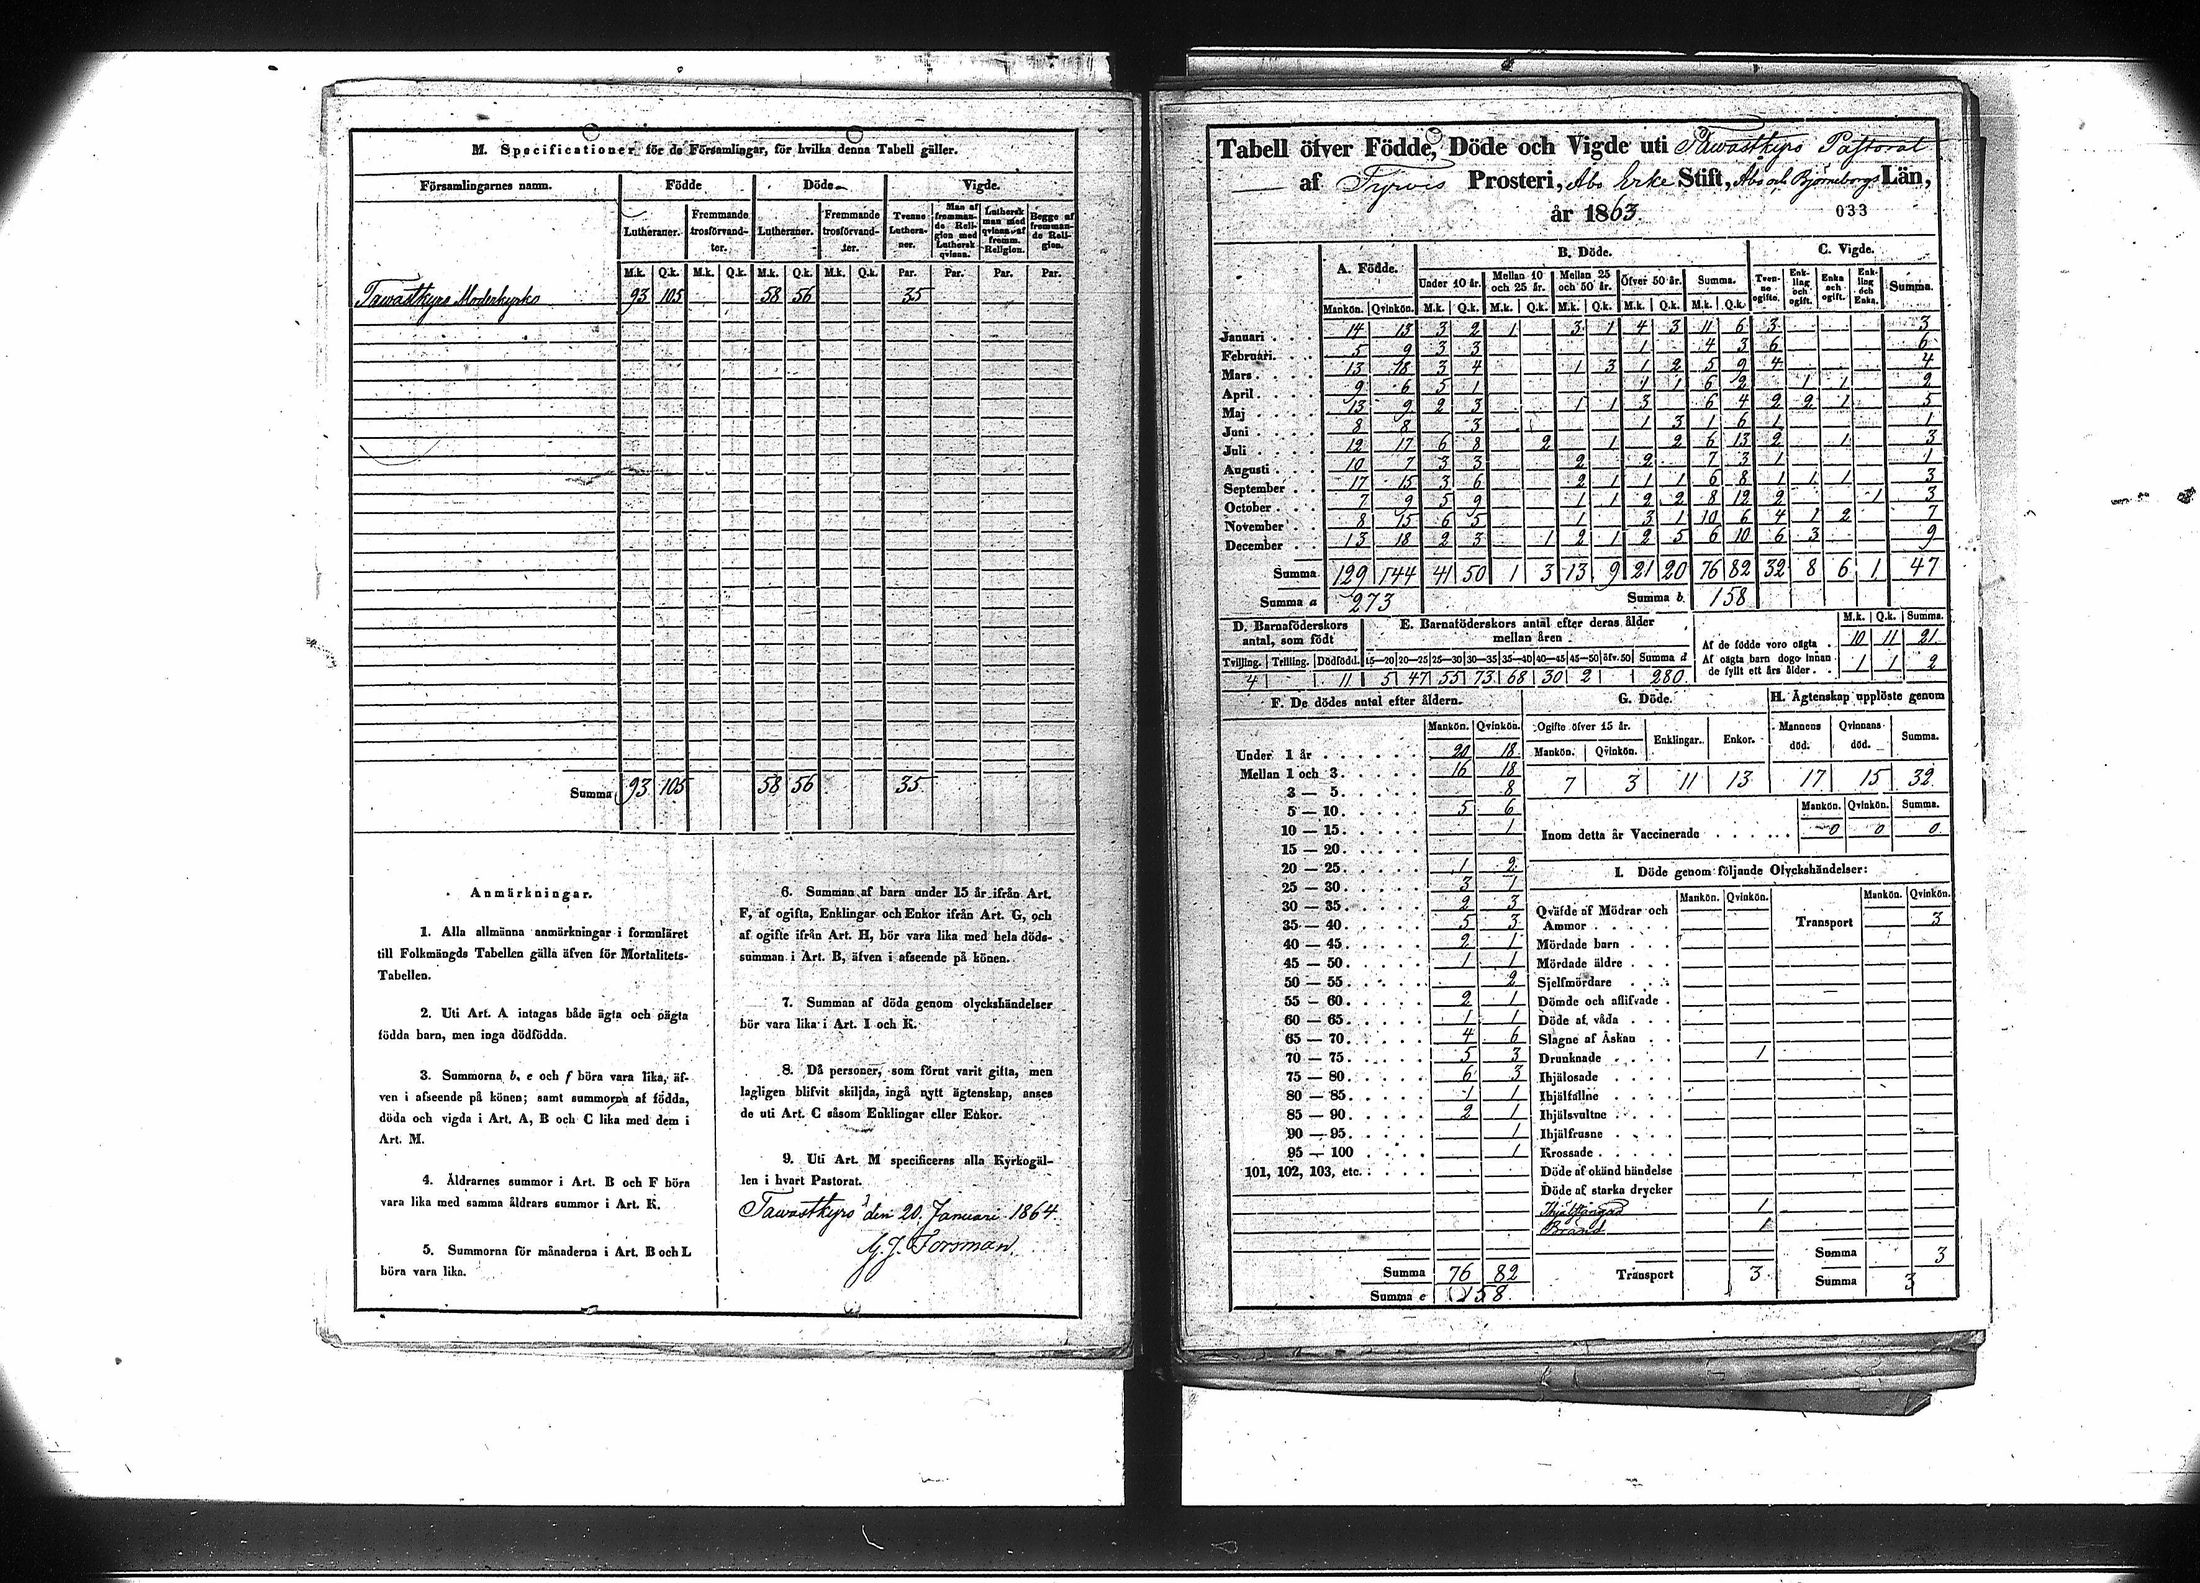 M. Specificationer för de Församlingar, för hvilka denna Tabell gäller.
Församlingarnes namn. Födde Döde Vigde.
Lutheraner. Fremmande trosförvandter. Lutheraner. Fremmande trosförvandter. Tvenne Lutheraner. Man af fremmande Religion med Luthersk qvinna. Luthersk man med qvinna af fremm. Religion. Begge af fremmande Religion.
M.k. Q.k. M.k. Q.k. M.k. Q.k. M.k. Q.k. Par. Par. Par. Par.
Tawastkyro Moderkyrko 93 105 58 56 35
Summa 93 105 58 56 35
Anmärkningar.
1. Alla allmänna anmärkningar i formuläret
till Folkmängds Tabellen gälla äfven för Mortalitets-
Tabellen.
2. Uti Art. A intagas både ägta och oägta
födda barn, men inga dödfödda.
3. Summorna b, e och f böra vara lika, äf-
ven i afseende på könen; samt summorna af födda,
döda och vigda i Art. A, B och C lika med dem i
Art. M.
4. Åldrarnes summor i Art. B och F böra
vara lika med samma åldrars summor i Art. K.
5. Summorna för månaderna i Art. B och L
böra vara lika.
6. Summan af barn under 15 år ifrån Art.
F, af ogifta, Enklingar och Enkor ifrån Art. G, och
af ogifte ifrån Art. H, bör vara lika med hela döds-
summan i Art. B, äfven i afseende på könen.
7. Summan af döda genom olyckshändelser
bör vara lika i Art. I och K.
8. Då personer, som förut varit gifta, men
lagligen blifvit skiljda, ingå nytt ägtenskap, anses
de uti Art. C såsom Enklingar eller Enkor.
9. Uti Art. M specificeras alla Kyrkogäl-
len i hvart Pastorat.
Tawastkyro den 20 Januari 1864.
G. J. Forsman.
Tabell öfver Födde, Döde och Vigde uti Tawastkyro Pastorat
af Tyrvis Prosteri, Abo Erke Stift, Abo och Björneborgs Län,
år 1863. 033
A. Födde. B. Döde. C. Vigde.
Under 10 år. Mellan 10 och 25 år. Mellan 25 och 50 år. Öfver 50 år. Summa. Tvenne ogifte. Enkling och ogift. Enka och ogift. Enkling och Enka. Summa.
Mankön. Qvinkön. M.k. Q.k. M.k. Q.k. M.k. Q.k. M.k. Q.k. M.k. Q.k.
Januari 14 13 3 2 1 3 1 4 3 11 6 3 3
Februari. 5 9 3 3 1 4 3 6 6
Mars 13 18 3 4 1 3 1 2 5 9 4 4
April 9 6 5 1 1 1 6 2 1 1 2
Maj 13 9 2 3 1 1 3 6 4 2 2 1 5
Juni 8 8 3 1 3 1 6 1 1
Juli 12 17 6 8 2 1 2 6 13 2 1 3
Augusti 10 7 3 3 2 2 7 3 1 1
September 17 15 3 6 2 1 1 1 6 8 1 1 1 3
October 7 9 5 9 1 1 2 2 8 12 2 1 3
November 8 15 6 5 1 3 1 10 6 4 1 2 7
December 13 18 2 3 1 2 1 2 5 6 10 6 3 9
Summa 129 144 41 50 1 3 13 9 21 20 76 82 32 8 6 1 47
Summa a 273 Summa b. 158
D. Barnaföderskors antal, som födt
Tvilling. Trilling. Dödfödd.
4 11
E. Barnaföderskors antal efter deras ålder mellan åren
15—20 20—25 25—30 30—35 35—40 40—45 45—50 öfv. 50 Summa d
5 47 55 73 68 30 2 280
M.k. Q.k. Summa.
Af de födde voro oägta 10 11 21
Af oägta barn dogo innan de fyllt ett års ålder 1 1 2
F. De dödes antal efter åldern.
Mankön. Qvinkön.
Under 1 år 20 18
Mellan 1 och 3 16 18
3 — 5 8
5 — 10 5 6
10 — 15 1
15 — 20
20 — 25 1 2
25 — 30 3 1
30 — 35 2 3
35 — 40 5 3
40 — 45 2 1
45 — 50 1 1
50 — 55 2
55 — 60 2 1
60 — 65 1 1
65 — 70 4 6
70 — 75 5 3
75 — 80 6 3
80 — 85 1 1
85 — 90 2 1
90 — 95 1
95 — 100 1
101, 102, 103, etc.
Summa 76 82
Summa e 158
G. Döde.
Ogifte öfver 15 år. Enklingar. Enkor.
Mankön. Qvinkön.
7 3 11 13
H. Ägtenskap upplöste genom
Mannens död. Qvinnans död. Summa.
17 15 32
Mankön. Qvinkön. Summa.
Inom detta år Vaccinerade 0 0 0
I. Döde genom följande Olyckshändelser:
Mankön. Qvinkön. Mankön. Qvinkön.
Qväfde af Mödrar och Ammor Transport 3
Mördade barn
Mördade äldre
Sjelfmördare
Dömde och aflifvade
Döde af våda
Slagne af Åskan
Drunknade 1
Ihjälosade
Ihjälfallne
Ihjälsvultne
Ihjälfrusne
Krossade
Döde af okänd händelse
Döde af starka drycker
Ihjälstångad 1
Bränd 1
Summa 3
Transport 3 Summa 3